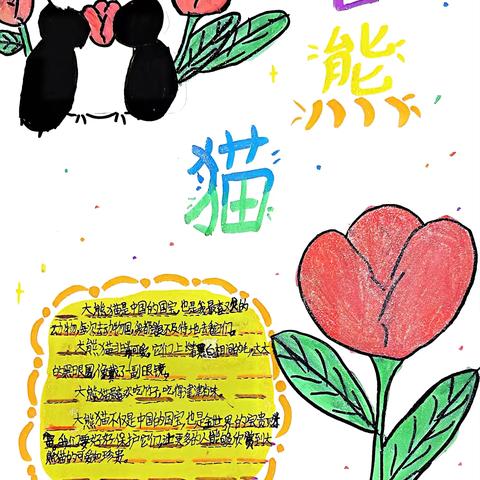 熊
猫
大熊猫是中国的国宝,也是我最喜欢的
动物,每次去动物园我都迫不及待地去看它们。
大熊猫非常可爱,它们上黑白相间的,大大
的黑眼圈像戴了副眼镜。
大熊猫喜欢吃竹子,吃得津津有味。
大熊猫不仅是中国的国宝,也是全世界的宝贵
我们要好好保护它们,让更多的人能够欣赏到大
熊猫的可爱和珍贵。